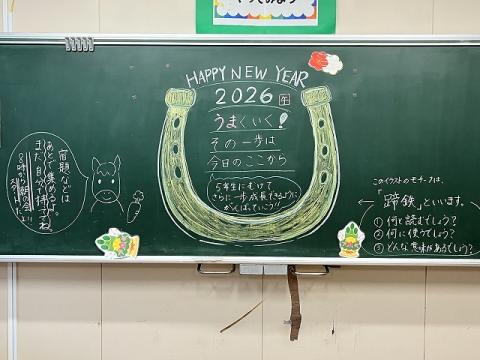 HAPPY NEW YEAR
2026 午
うまくいく!
その一歩は
今日のここから
5年生にむけて
さらに一歩成長できるように
がんばっていこう!!
宿題などは
あとで集めるので
まだ自分で持ってね
このイラストのモチーフは、
「蹄鉄」といいます。
① 何と読むでしょう?
② 何に使うでしょう?
③ どんな意味があるでしょう?